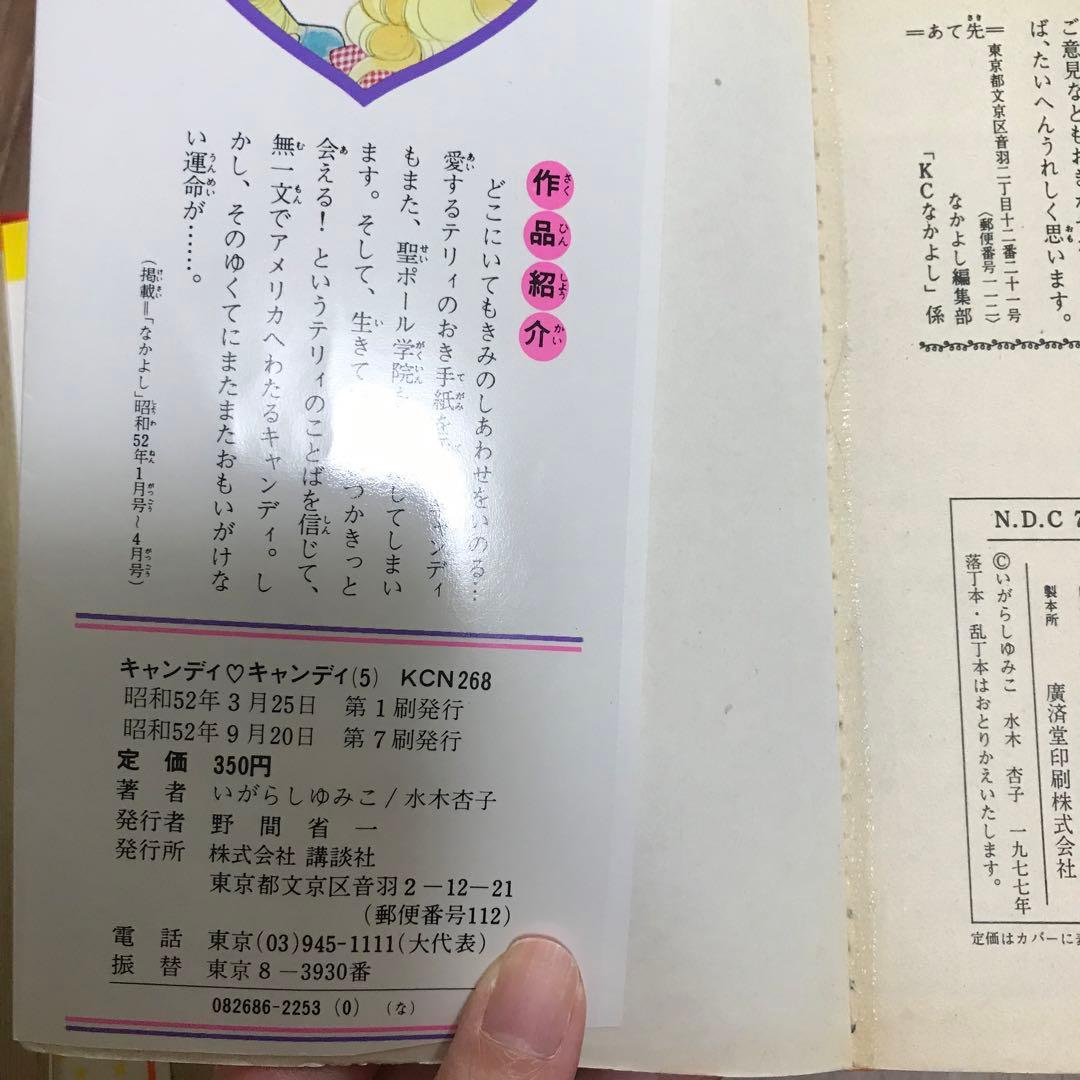 ご意見などもおき
ば、たいへんうれしく思います。
＝あて先＝
東京都文京区音羽二丁目十二番二十一号
〈郵便番号一一二〉
なかよし編集部
「KCなかよし」係
作品紹介
どこにいてもきみのしあわせをいのる…
愛するテリィのおき手紙を ンディ
もまた、聖ポール学院 してしまい
ます。そして、生きて つかきっと
会える！というテリィのことばを信じて、
無一文でアメリカへわたるキャンディ。し
かし、そのゆくてにまたまたおもいがけな
い運命が……。
（掲載＝「なかよし」昭和52年1月号〜4月号）
キャンディ♡キャンディ(5) KCN268
昭和52年3月25日 第1刷発行
昭和52年9月20日 第7刷発行
定価 350円
著者 いがらしゆみこ/水木杏子
発行者 野間省一
発行所 株式会社 講談社
東京都文京区音羽2-12-21
(郵便番号112)
電話 東京(03)945-1111(大代表)
振替 東京8-3930番
082686-2253 (0) (な)
N.D.C 7
製本所 廣済堂印刷株式会社
©いがらしゆみこ 水木 杏子 一九七七年
落丁本・乱丁本はおとりかえいたします。
定価はカバーに